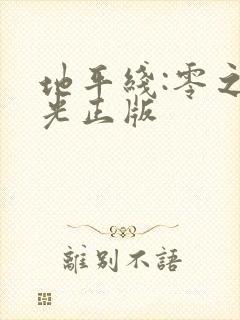 地平綫:零之
光正版
離別不語